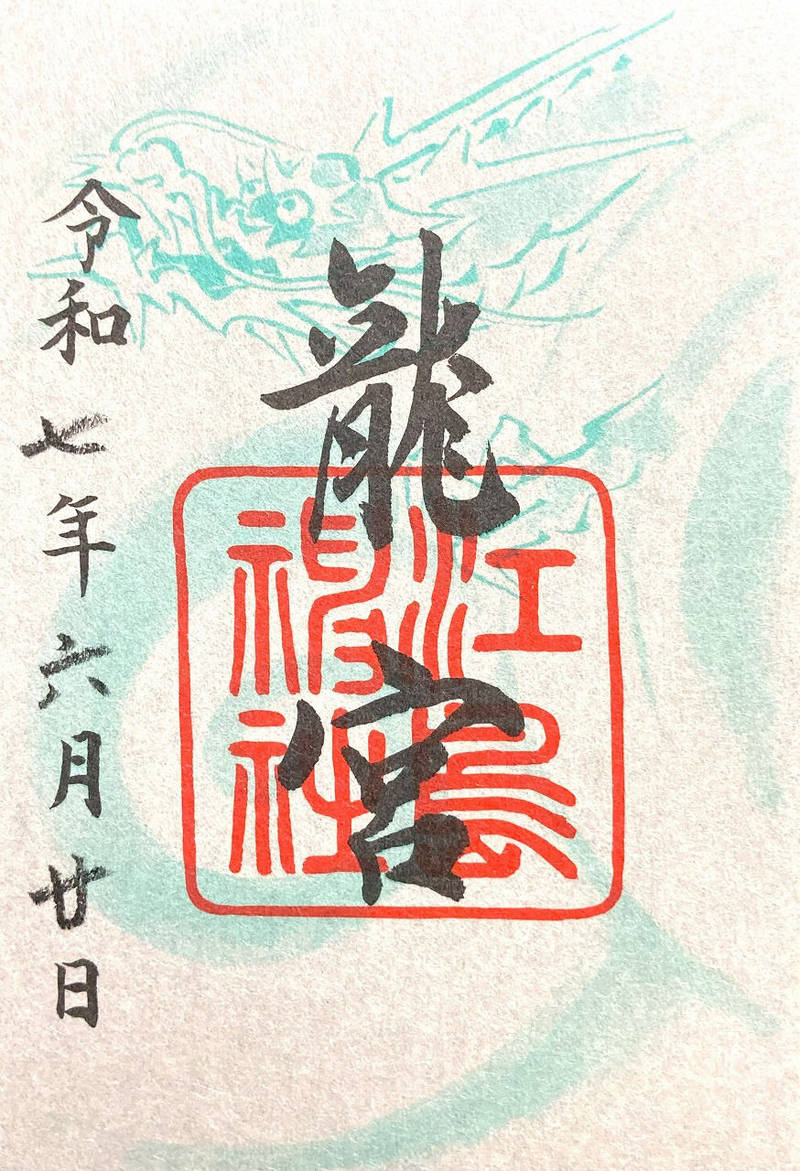 龍宮
江島
神社
令和七年六月廿日